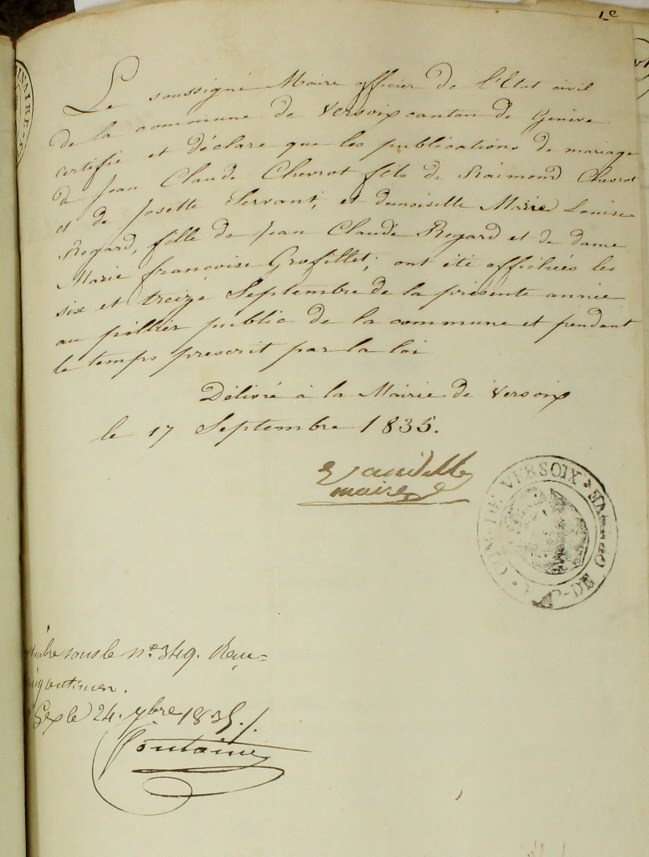 1.C
Le soussigné Maire officier de l'Etat civil
de la commune de Versoix canton de Genève
certifie et déclare que les publications de mariage
de Jean Claude Chevrot fils de Raimond Chevrot
et de Josette Servant, et demoiselle Marie Louise
Regard, fille de Jean Claude Regard et de dame
Marie françoise Grosfillet, ont été affichées les
six et treize Septembre de la présente année
au pillier public de la commune et pendant
le temps prescrit par la loi
Délivré à la Mairie de Versoix
le 17 Septembre 1835.
maire
COM. DE VERSOIX
C.-DE GENEVE
sous le n.° 349. Reçu
Gex le 24. 7bre 1835.